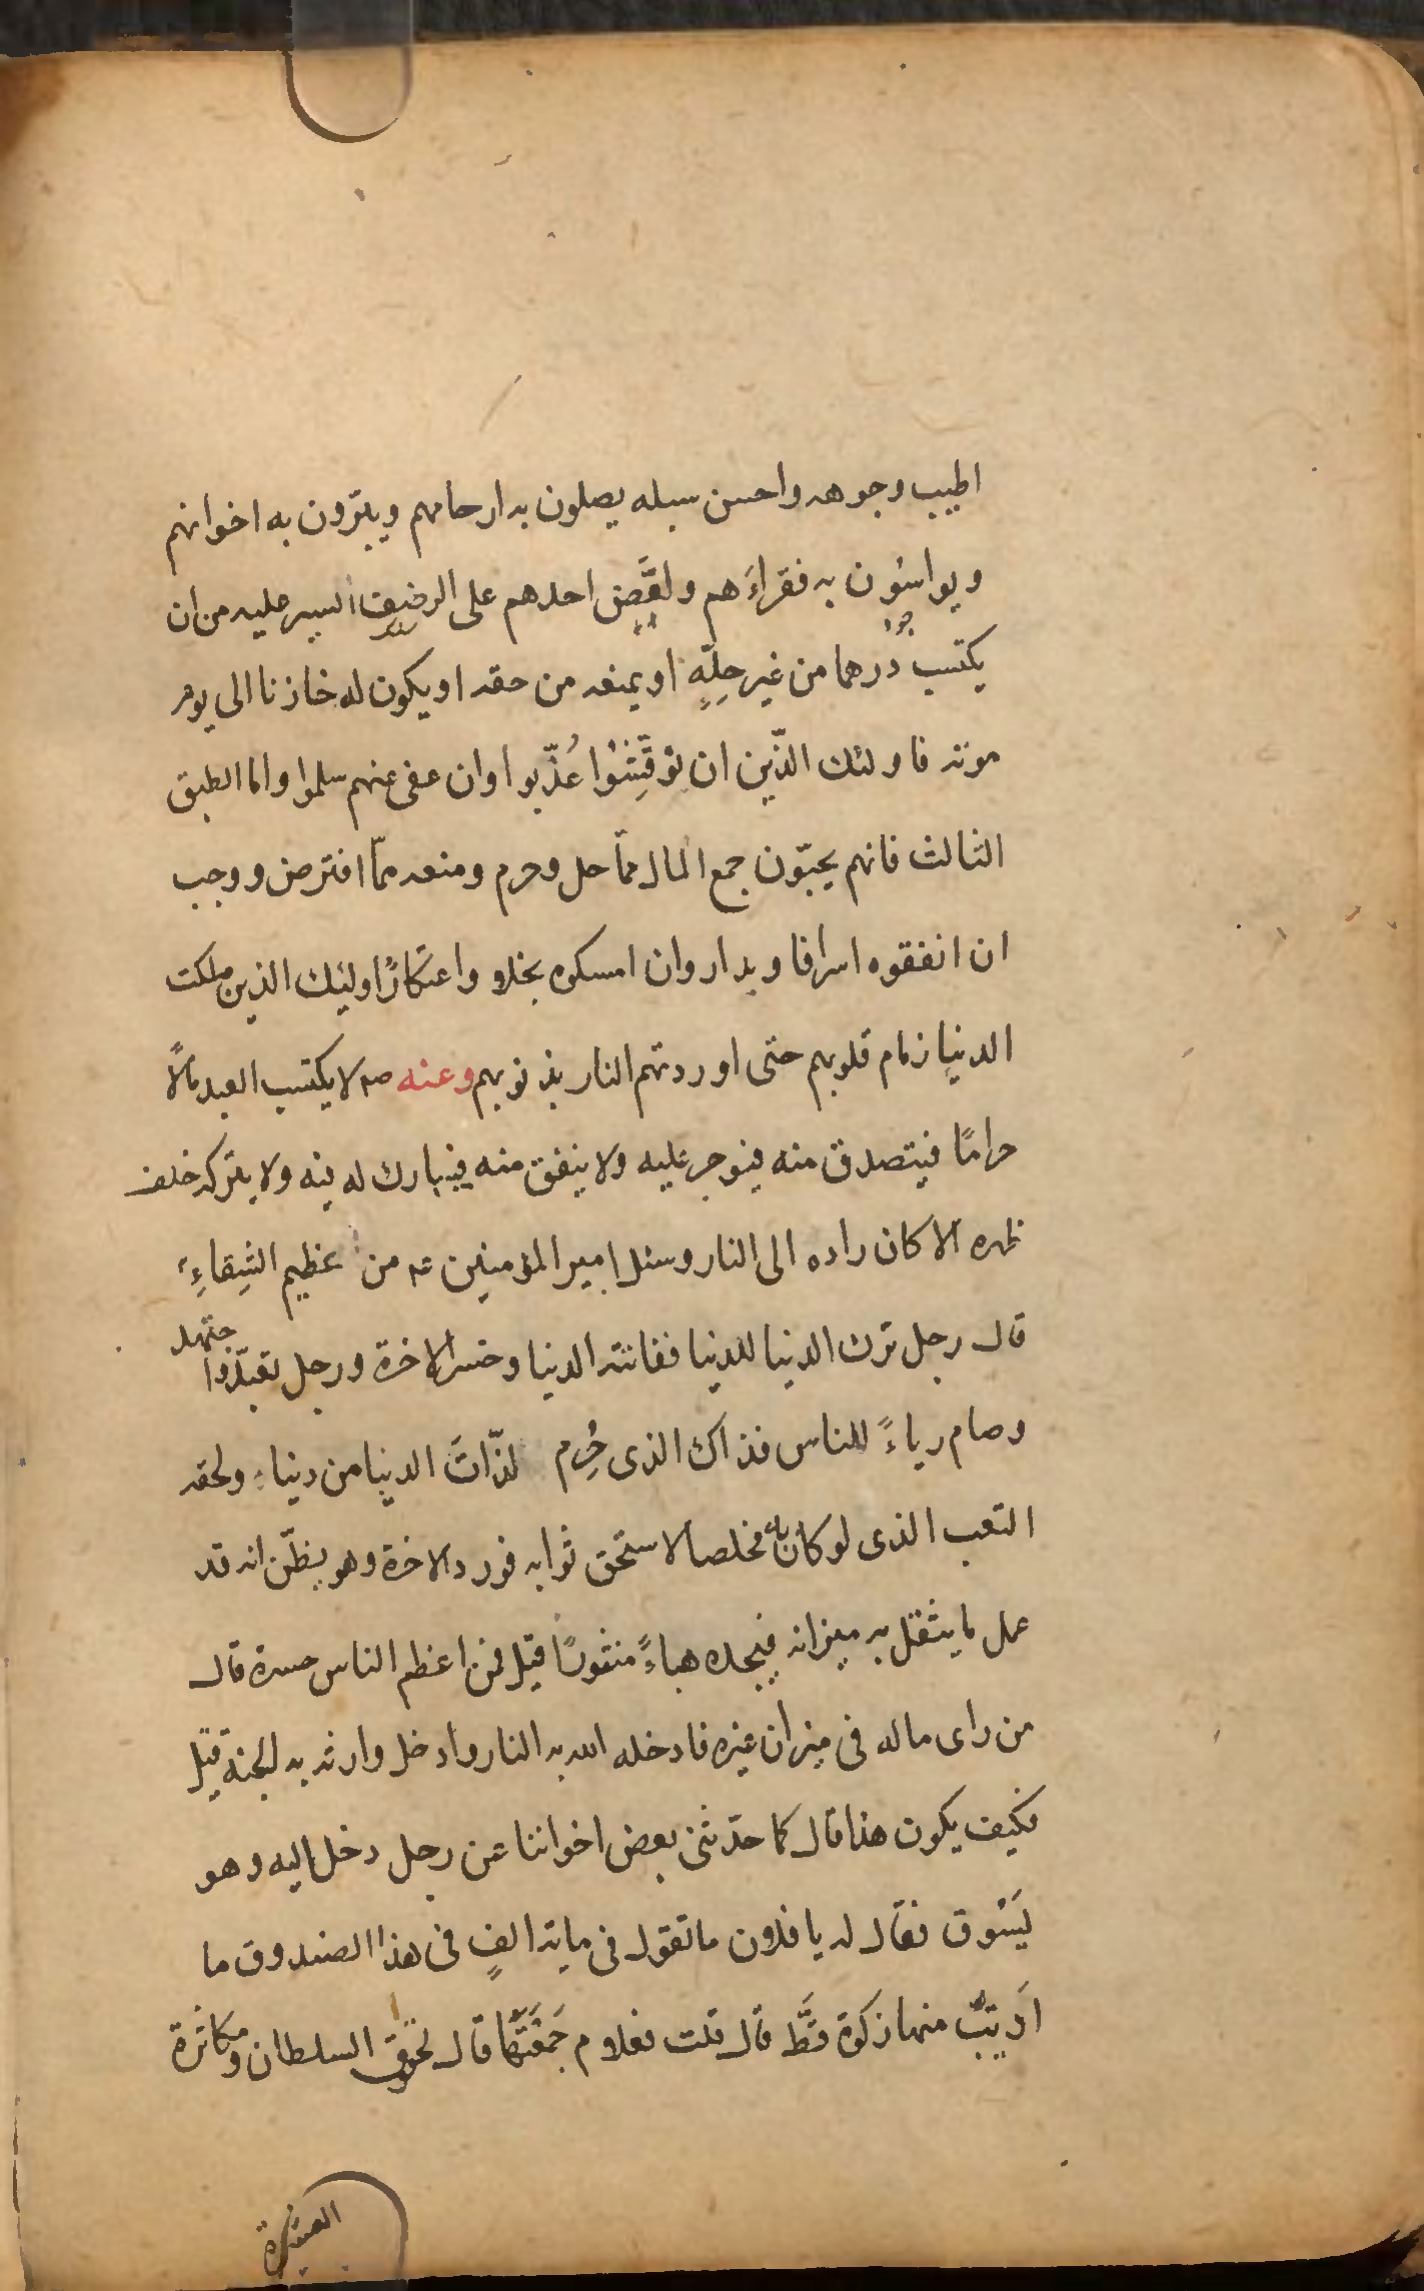 اطيب وجوهه واحسن سبله يصلون به ارحامهم ويبرّون به اخوانهم
ويواسُون به فقراءَهم ولعَضّ احدهم على الرضيف ايسر عليه من ان
يكتسب دُرهما من غير حِلِّهٍ او يمنعه من حقه او يكون له خازنا الى يوم
موته فاولئك الذّين ان نوقِشُوا عُذّبوا وان عفى عنهم سلموا واما الطبق
الثالث فانهم يحبّون جمع المال ممّا حل وحرم ومنعه ممّا افترض ووجب
ان انفقوه اسرافا وبدار وان امسكوه بخلا واعتكارًا اولئك الذين ملكت
الدنيا زمام قلوبهم حتى اوردتهم النار بذنوبهم وعنه صم لا يكتسب العبد مالًا
حرامًا فيتصدق منه فيوجر عليه ولا ينفق منه فيبارك له فيه ولا يتركه خلف
ظهره الا كان راده الى النار وسئل امير المؤمنين عم من عظيم الشِقاءِ
قال رجل ترك الدنيا للدنيا ففاتته الدنيا وخسر الاخرة ورجل تعبّد واجتهد
وصام رياءً للناس فذاك الذى حُرِم لذّاتَ الدنيا من دنياء ولحقه
التعب الذى لو كان به مخلصا لاستحق ثوابه فورد الاخرة وهو يظنّ انه قد
عمل ما يثقل به ميزانه فيجده هباءً منثورًا قيل فمن اعظم الناس حسرة قال
من راى ماله فى ميزان غيره فادخله الله به النار وادخل وارثه به الجنة قيل
فكيف يكون هذا قال كما حدّثنى بعض اخواننا عن رجل دخل اليه وهو
يَسُوق فقال له يا فلان ما تقول فى ماية الفٍ فى هذا الصندوق ما
اَديتُ منها زكوة قَطّ قال قلت فعلام جَمَعْتَها قال لحقوق السلطان ومكاثرة
العشيرة